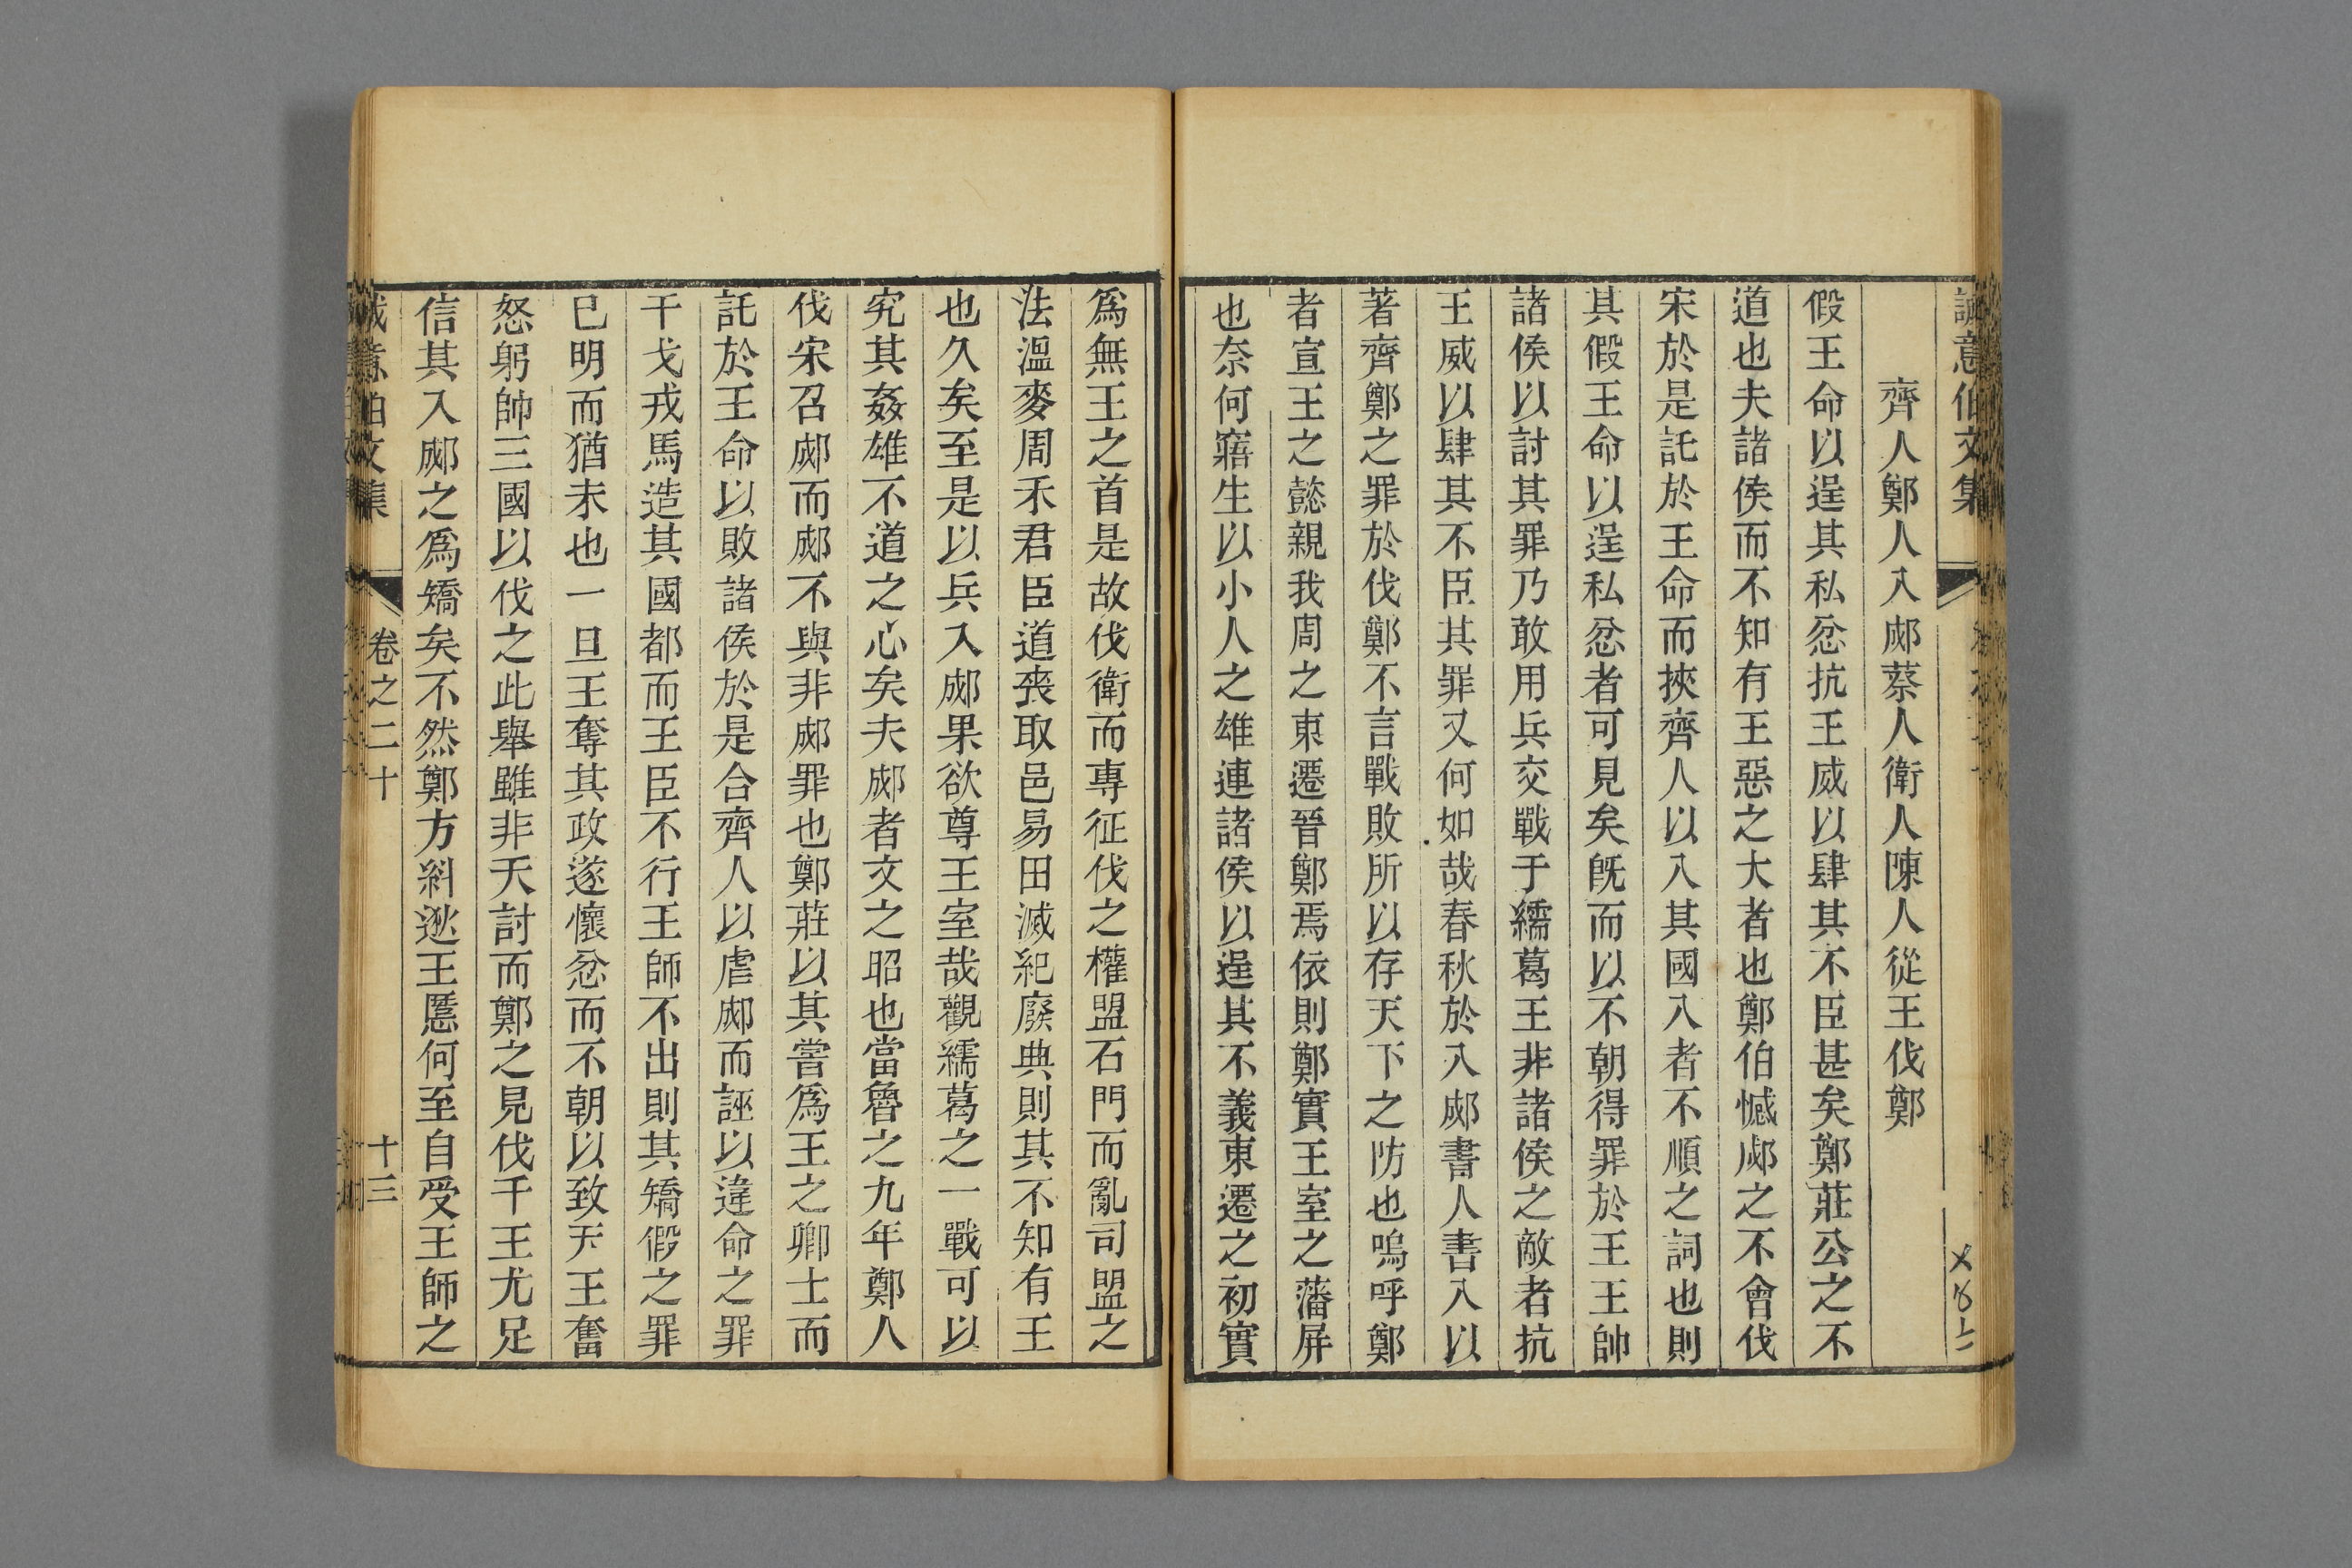 誠意伯文集
齊人鄭人入郕蔡人衛人陳人從王伐鄭
假王命以逞其私忿抗王威以肆其不臣甚矣鄭莊公之不
道也夫諸侯而不知有王惡之大者也鄭伯憾郕之不會伐
宋於是託於王命而挾齊人以入其國入者不順之詞也則
其假王命以逞私忿者可見矣旣而以不朝得罪於王王帥
諸侯以討其罪乃敢用兵交戰于繻葛王非諸侯之敵者抗
王威以肆其不臣其罪又何如哉春秋於入郕書人書入以
著齊鄭之罪於伐鄭不言戰敗所以存天下之防也嗚呼鄭
者宣王之懿親我周之東遷晉鄭焉依則鄭實王室之藩屏
也奈何寤生以小人之雄連諸侯以逞其不義東遷之初實
爲無王之首是故伐衛而專征伐之權盟石門而亂司盟之
法溫麥周禾君臣道喪取邑易田滅紀廢典則其不知有王
也久矣至是以兵入郕果欲尊王室哉觀繻葛之一戰可以
究其姦雄不道之心矣夫郕者文之昭也當魯之九年鄭人
伐宋召郕而郕不與非郕罪也鄭莊以其嘗爲王之卿士而
託於王命以敗諸侯於是合齊人以虐郕而誣以違命之罪
干戈戎馬造其國都而王臣不行王師不出則其矯假之罪
巳明而猶未也一旦王奪其政遂懷忿而不朝以致天王奮
怒躬帥三國以伐之此舉雖非天討而鄭之見伐千王尤足
信其入郕之爲矯矣不然鄭方糾逖王慝何至自受王師之
誠意伯文集 卷之二十 十三